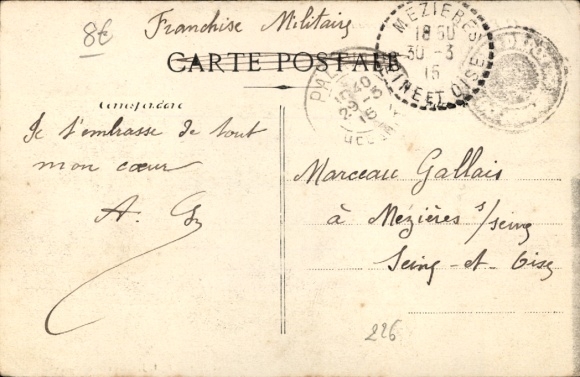 8€ Franchise Militaire
CARTE POSTALE
MÉZIÈRES
18 30
30 - 3
15
SEINE ET OISE
Correspondance
Je t'embrasse de tout
mon cœur
A. G
Marceau Gallais
à Mézières s/seine
Seine-et-Oise
226